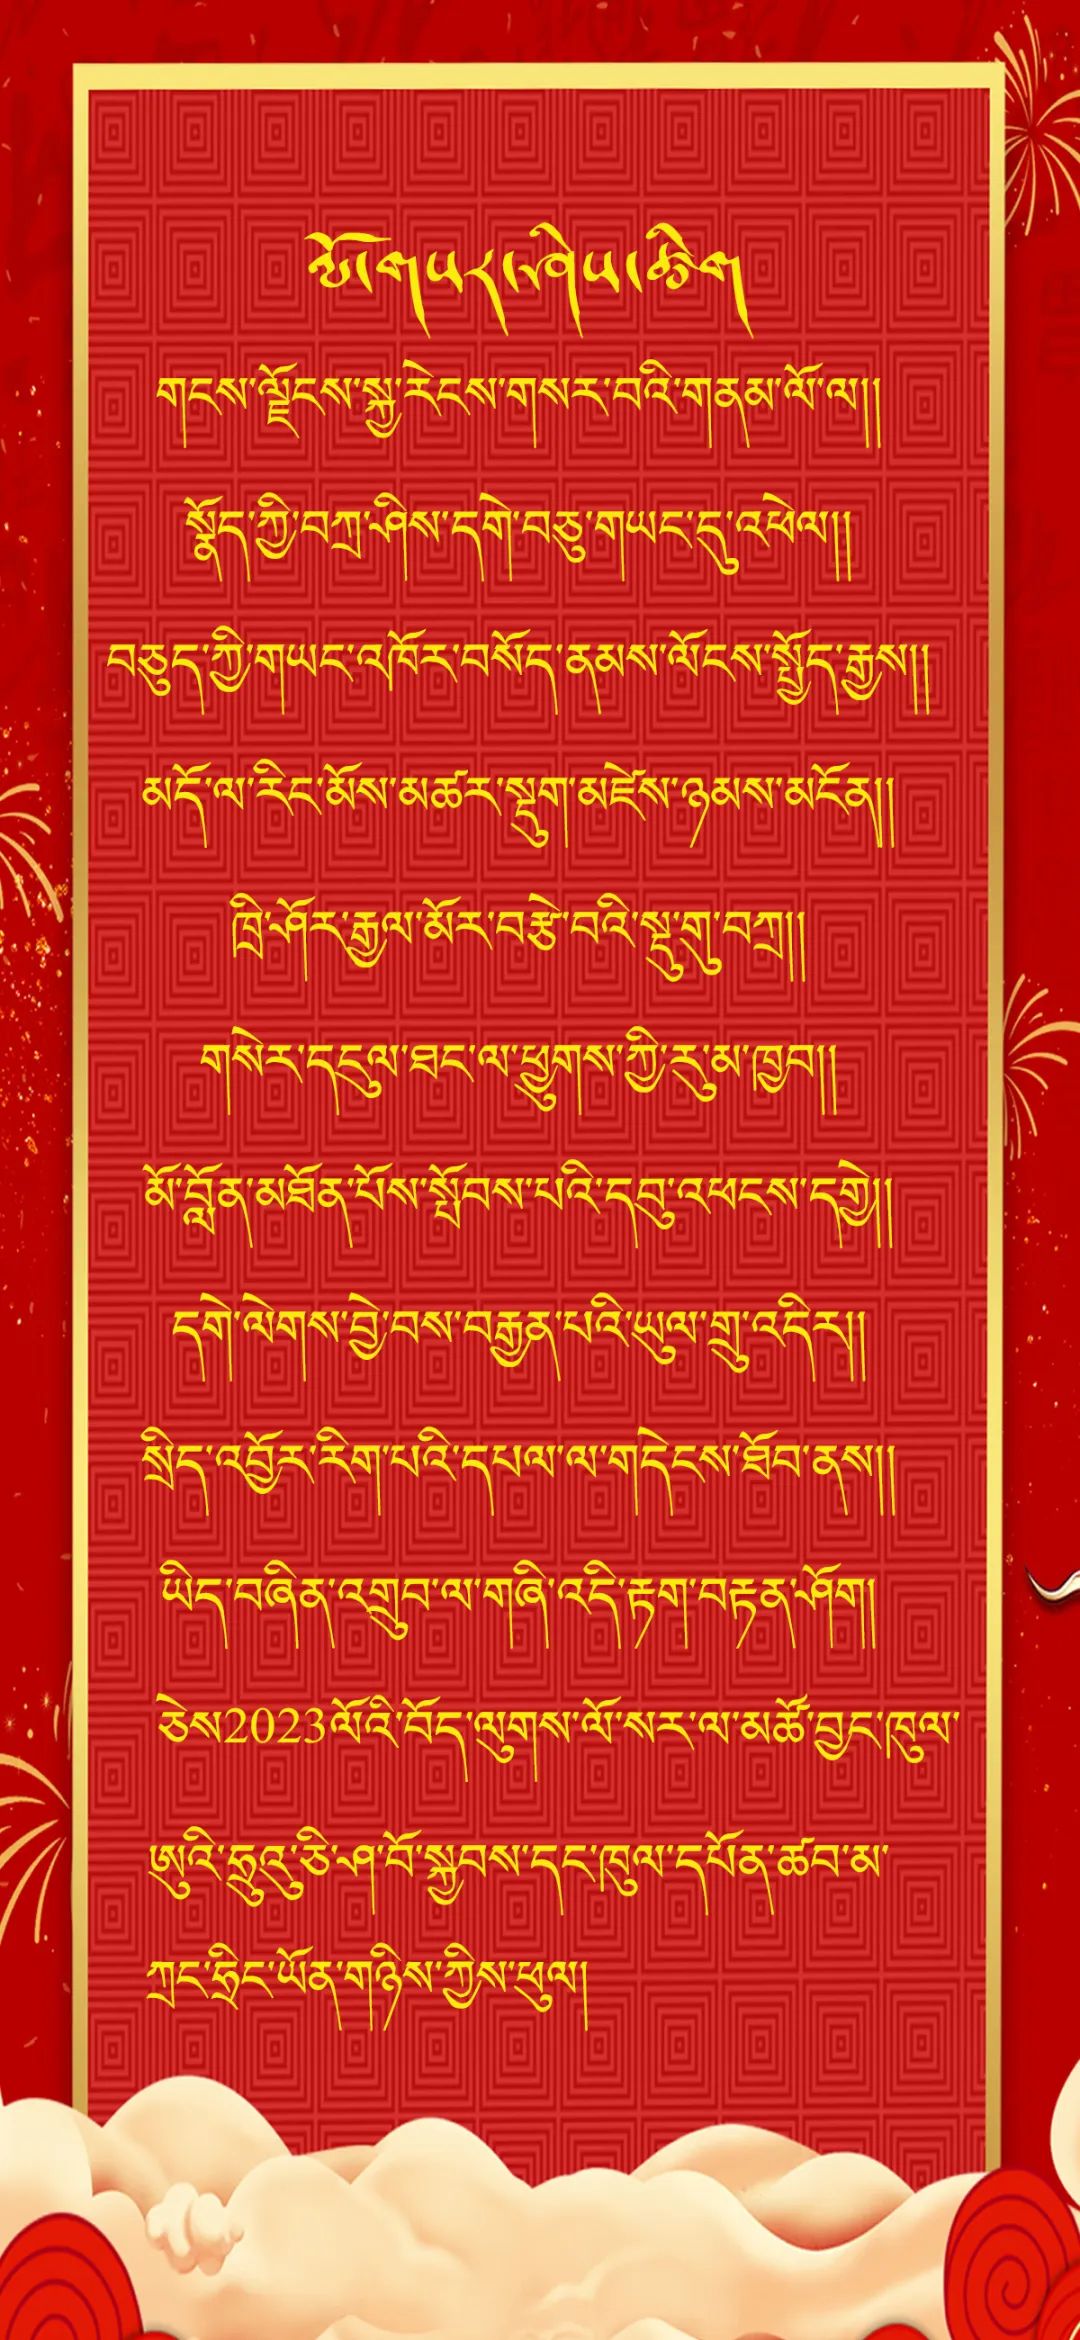 ལོ་གསར་ཤིས་ཚིག
གངས་ལྗོངས་སྐྱ་རེངས་གསར་བའི་གནམ་ལོ་ལ།།
སྣོད་ཀྱི་བཀྲ་ཤིས་དགེ་བཅུ་གཡང་དུ་འཕེལ།།
བཅུད་ཀྱི་གཡང་འཁོར་བསོད་ནམས་ལོངས་སྤྱོད་རྒྱས།།
མདོ་ལ་རིང་མོས་མཚར་སྡུག་མཛེས་ཉམས་མངོན།།
ཁྲི་ཤོར་རྒྱལ་མོར་བརྩེ་བའི་སྡུ་གུ་བཀྲ།།
གསེར་དངུལ་ཐང་ལ་ཕྱུགས་ཀྱི་རུ་མ་ཁྱབ།།
མོ་བློན་མཐོན་པོས་སྤོབས་པའི་དབུ་འཕངས་དགྱེ།།
དགེ་ལེགས་བྱེ་བས་བརྒྱན་པའི་ཡུལ་གྲུ་འདིར།།
སྲིད་འབྱོར་རིག་པའི་དཔལ་ལ་གདེངས་ཐོབ་ནས།།
ཡིད་བཞིན་འགྲུབ་ལ་གཞི་འདི་རྟག་བརྟན་ཤོག།
ཅེས2023ལོའི་བོད་ལུགས་ལོ་སར་ལ་མཚོ་བྱང་ཁུལ་
ཨུའི་ཧྲུའུ་ཅི་ཤ་བོ་སྐྱབས་དང་ཁུལ་དཔོན་ཚབ་མ་
ཀྲང་ཧྲིང་ཡོན་གཉིས་ཀྱིས་ཕུལ།